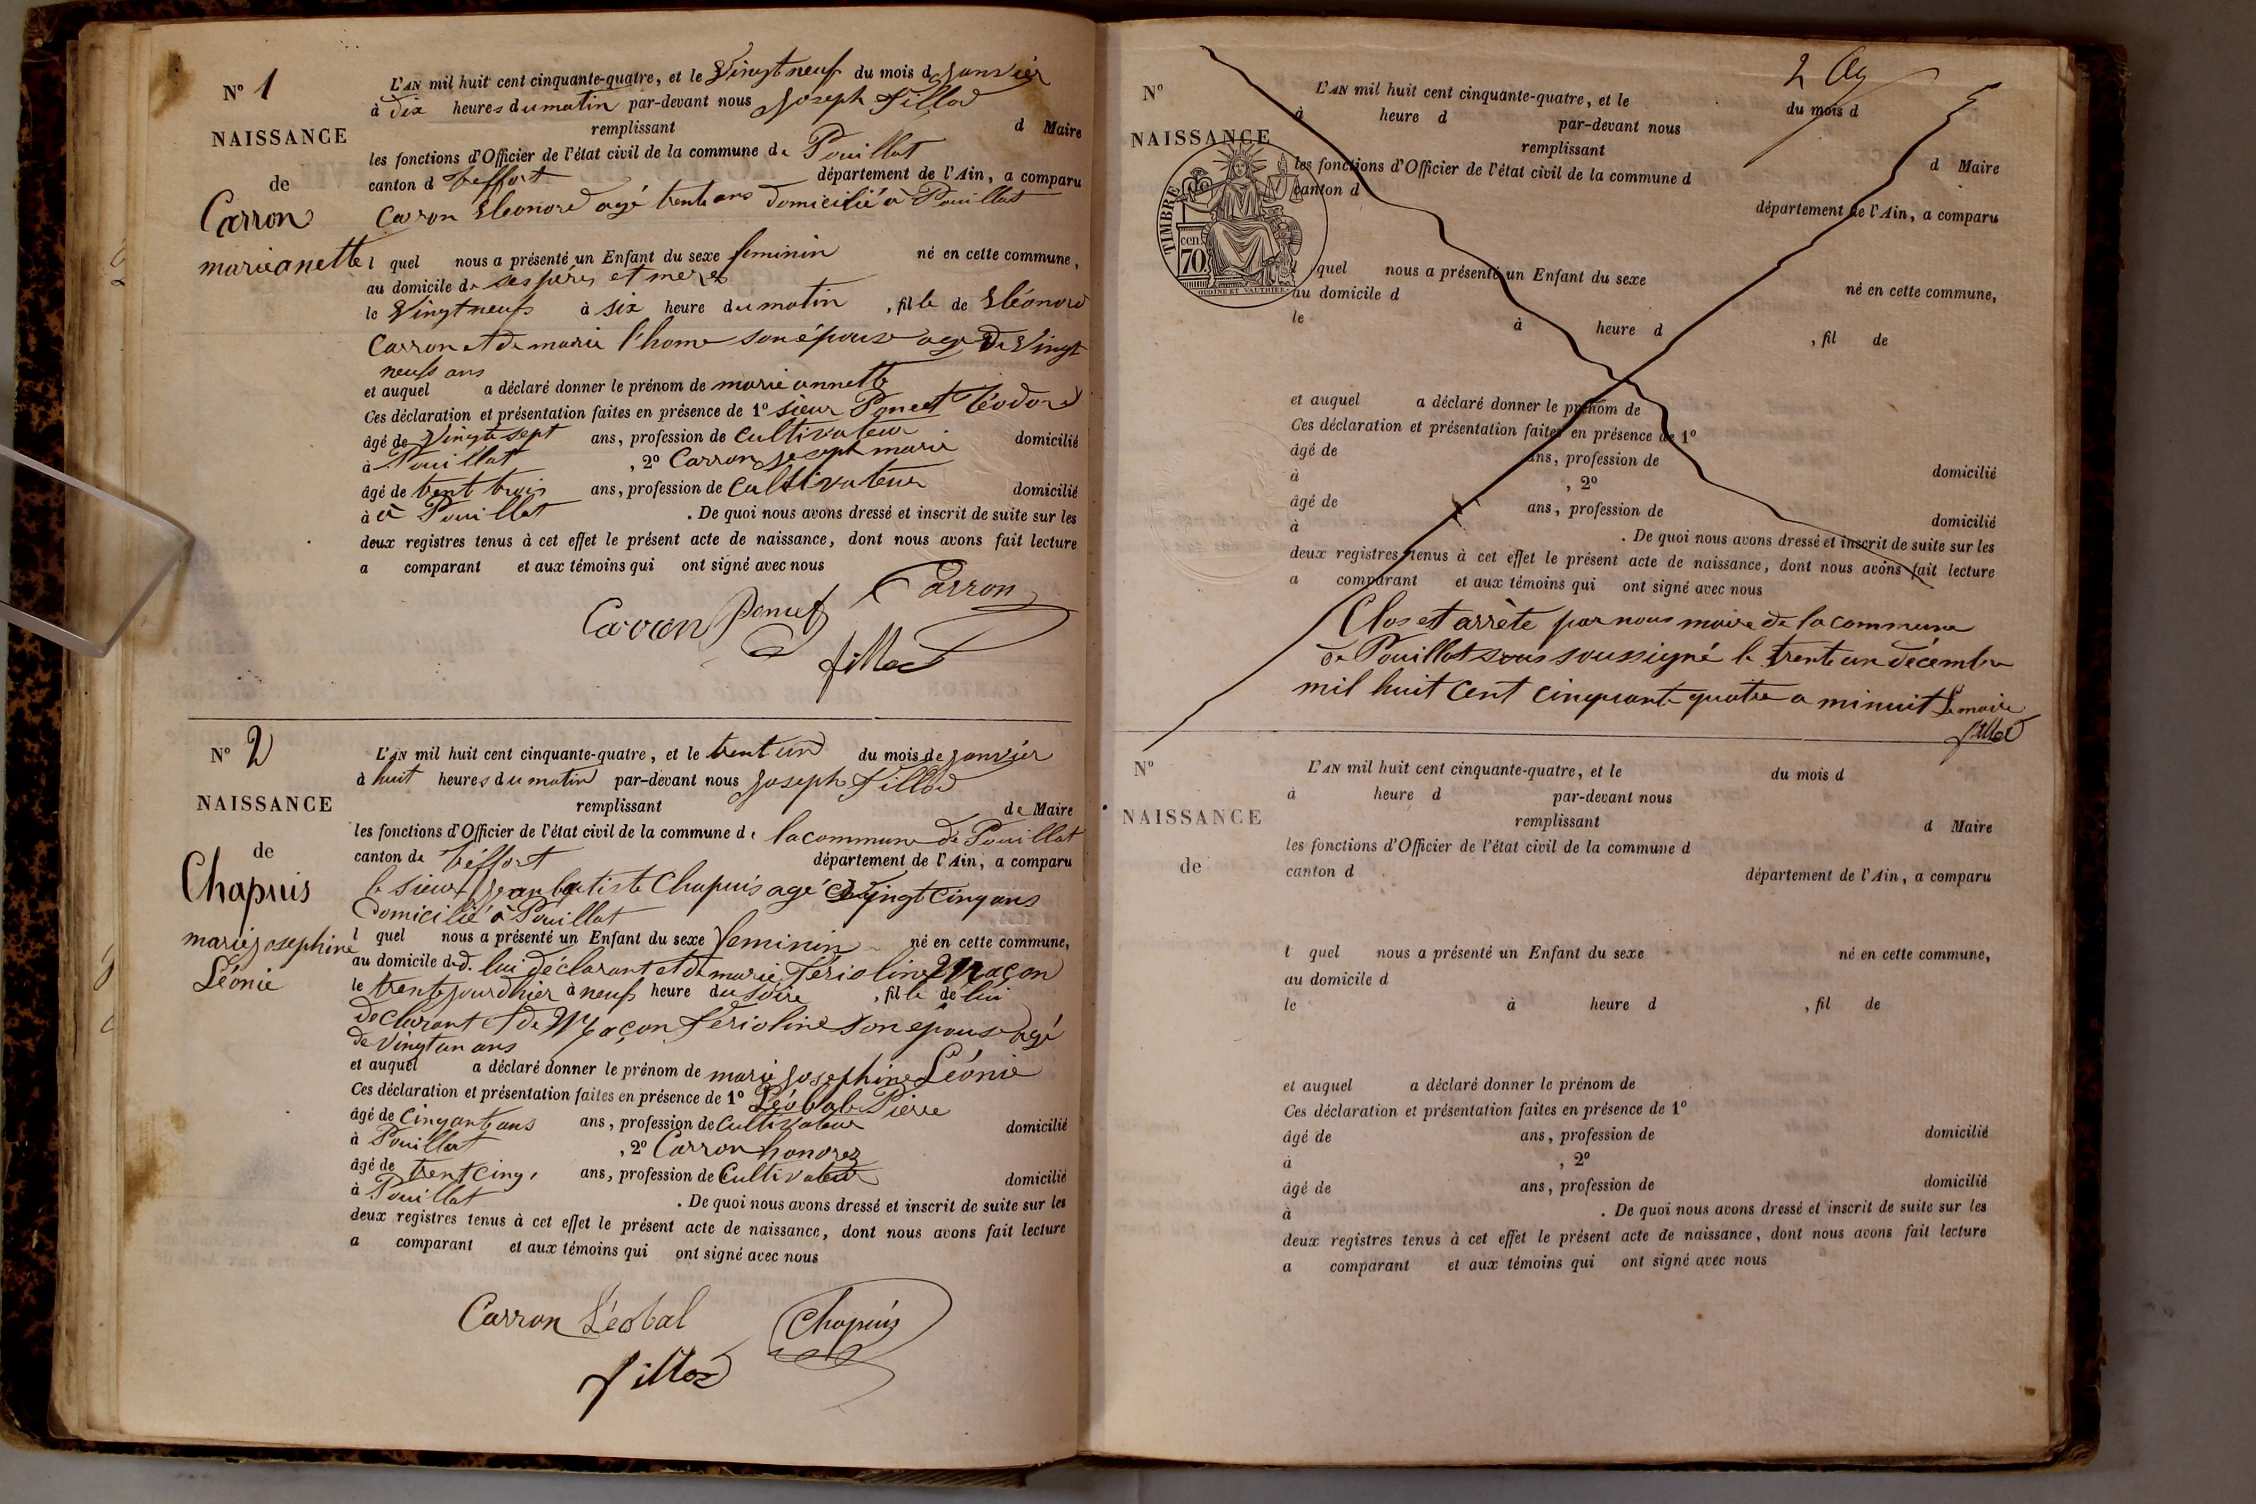 N° 1
NAISSANCE
de
Carron
marieanette
L'AN mil huit cent cinquante-quatre, et le Vingt neuf du mois d Janvier
à dix heures du matin par-devant nous Joseph Fillod
remplissant d Maire
les fonctions d'Officier de l'état civil de la commune de Pouillat
canton d treffort département de l'Ain, a comparu
Carron Eléonord agé trente ans domicilié à Pouillat
l quel nous a présenté un Enfant du sexe feminin né en cette commune,
au domicile de ses péres et merez
le Vingt neuf à six heure du matin , fille de Eléonord
Carron et de marie l'home son épouse agé De Vingt
neuf ans
et auquel a déclaré donner le prénom de marie annette
Ces déclaration et présentation faites en présence de 1° sieur Poncet téodord
âgé de Vingt sept ans, profession de Cultivateur domicilié
à Pouillat , 2° Carron Joseph marie
âgé de trent trois ans, profession de Cultivateur domicilié
à à Pouillat . De quoi nous avons dressé et inscrit de suite sur les
deux registres tenus à cet effet le présent acte de naissance, dont nous avons fait lecture
a comparant et aux témoins qui ont signé avec nous
Carron Poncet Carron
fillod
N° 2
NAISSANCE
de
Chapuis
marie josephine
Léonie
L'AN mil huit cent cinquante-quatre, et le trent un du mois de Janvier
à huit heures du matin par-devant nous Joseph Fillod
remplissant de Maire
les fonctions d'Officier de l'état civil de la commune d la commune de Pouillat
canton de tréffort département de l'Ain, a comparu
le sieur Jean batiste Chapuis agé de Vingt cinq ans
Domicilié à Pouillat
l quel nous a présenté un Enfant du sexe feminin né en cette commune,
au domicile d d. lui déclarant et de marie Férioline Maçon
le trente jour d'hier à neuf heure du soire , fille de lui
declarant et de Maçon Férioline son épouse agé
de Vingt un ans
et auquel a déclaré donner le prénom de marie Josephine Léonie
Ces déclaration et présentation faites en présence de 1° Léobal Pierre
âgé de Cinqante ans ans, profession de Cultivateur domicilié
à Pouillat , 2° Carron honorez
âgé de trent cinq ans, profession de Cultivateur domicilié
à Pouillat . De quoi nous avons dressé et inscrit de suite sur les
deux registres tenus à cet effet le présent acte de naissance, dont nous avons fait lecture
a comparant et aux témoins qui ont signé avec nous
Carron Léobal Chapuis
fillod
2
N°
NAISSANCE
TIMBRE
cen.
70
OUDINE ET VAUTHIER
L'AN mil huit cent cinquante-quatre, et le du mois d
à heure d par-devant nous
remplissant d Maire
les fonctions d'Officier de l'état civil de la commune d
canton d département de l'Ain, a comparu
l quel nous a présenté un Enfant du sexe né en cette commune,
au domicile d
le à heure d , fil de
et auquel a déclaré donner le prénom de
Ces déclaration et présentation faites en présence de 1°
âgé de ans, profession de domicilié
à , 2°
âgé de ans, profession de domicilié
à . De quoi nous avons dressé et inscrit de suite sur les
deux registres tenus à cet effet le présent acte de naissance, dont nous avons fait lecture
a comparant et aux témoins qui ont signé avec nous
Clos et arrète par nous maire de la commune
de Pouillat sous soussigné le trente un décembre
mil huit cent cinquante quatre a minuit Le maire
fillod
N°
NAISSANCE
de
L'AN mil huit cent cinquante-quatre, et le du mois d
à heure d par-devant nous
remplissant d Maire
les fonctions d'Officier de l'état civil de la commune d
canton d département de l'Ain, a comparu
l quel nous a présenté un Enfant du sexe né en cette commune,
au domicile d
le à heure d , fil de
et auquel a déclaré donner le prénom de
Ces déclaration et présentation faites en présence de 1°
âgé de ans, profession de domicilié
à , 2°
âgé de ans, profession de domicilié
à . De quoi nous avons dressé et inscrit de suite sur les
deux registres tenus à cet effet le présent acte de naissance, dont nous avons fait lecture
a comparant et aux témoins qui ont signé avec nous